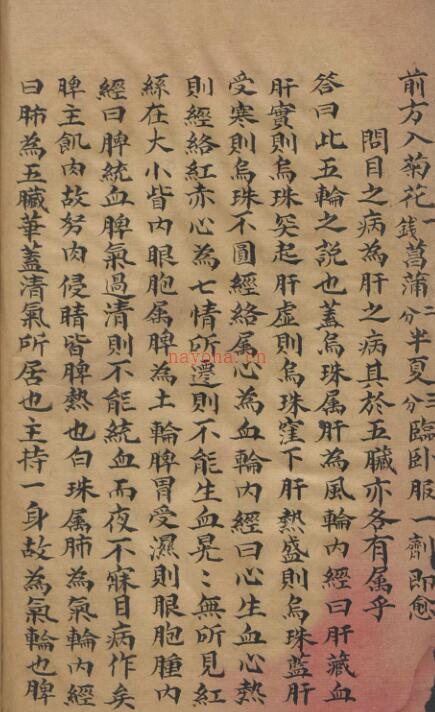 前方入菊花一錢菖蒲二分半夏三分臨卧服一劑即愈
問目之病為肝之病其於五臟亦各有属乎
答曰此五輪之說也蓋烏珠属肝為風輪內經曰肝藏血
肝實則烏珠突起肝虛則烏珠窪下肝熱盛則烏珠藍肝
受寒則烏珠不圓經絡属心為血輪內經曰心生血心熱
則經絡紅赤心為七情所遷則不能生血晃〻無所見紅
絲在大小眥內眼胞属脾為土輪脾胃受濕則眼胞腫內
經曰脾統血脾氣過清則不能統血而夜不寐目病作矣
脾主飢肉故努肉侵睛皆脾熱也白珠属肺為氣輪內經
曰肺為五臟華蓋清氣所居也主持一身故為氣輪也脾
nayona.cn